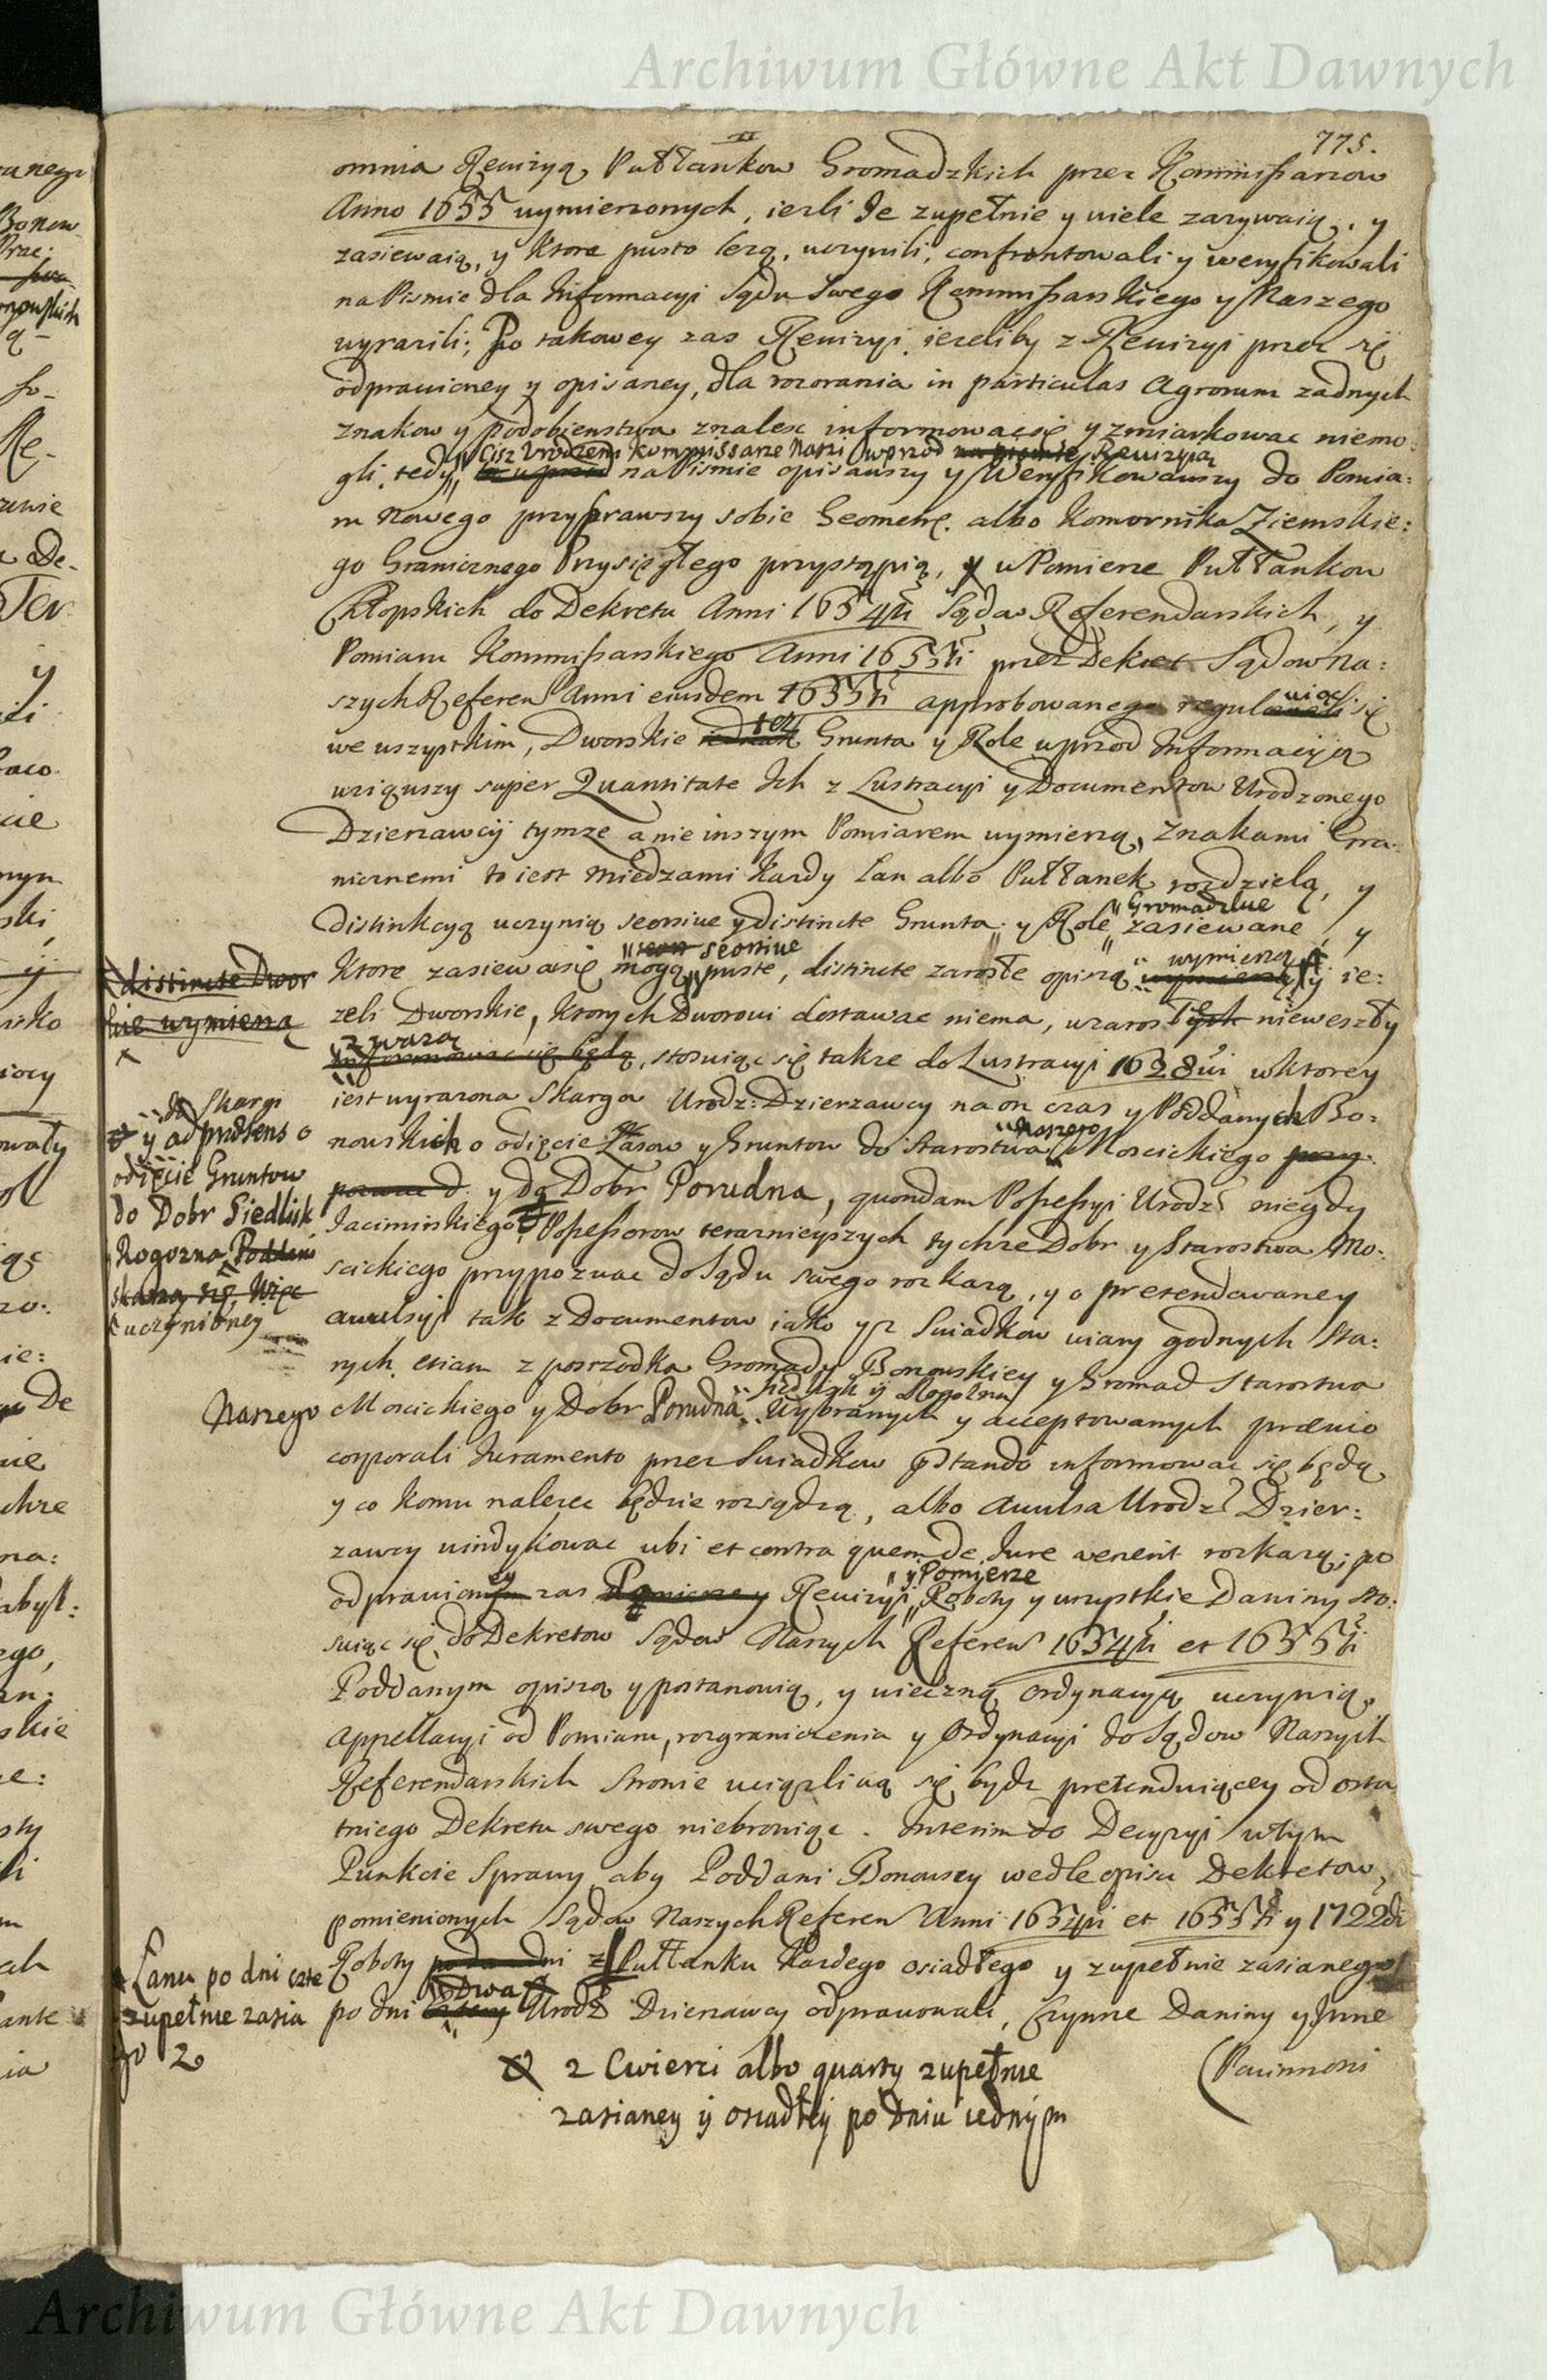 Archiwum Główne Akt Dawnych
775.
omnia Rewizyą Pułłankow Gromadzkich przez Kommissarzow
Anno 1655 wymierzonych, iezli Je zupełnie y wiele zarywaią, y
zasiewaią, y ktore pusto leżą, uczynili, confrontowali y weryfikowali
na Pismie dla Informacyi Sądu Swego Kommissarskiego y Naszego
wyrazili; Po takowey zas Rewizyi, iezeliby z Rewizyi przez się
odprawioney y opisaney, dla rozorania in particulas Agrorum zadnych
znakow y podobienstwa znalesc informowac się y zmiarkowac niemo:
Cisz Urodzeni Kommissarze Nasi wprzod na pismie Rewizyią
gli, tedy na Pismie opisawszy y Weryfikowawszy do Pomia:
ru Nowego przysprawszy sobie Geometrę, albo Komornika Ziemskie:
go Granicznego Przysięgłego przystąpią, y w Pomierze Pułłankow
Chłopskich do Dekretu Anni 1654ti Sądow Referendarskich, y
Pomiaru Kommissarskiego Anni 1655ti przez Dekret Sądow Na:
szych Referen Anni eiusdem 1655ti approbowanego reguluiąc się
też
we wszystkim, Dworskie iednak Grunta y Role wprzod Informacyią
wziąwszy super Quantitate Ich z Lustracyi y Documentow Urodzonego
Dzierzawcy tymże a nie inszym Pomiarem wymierzą, Znakami Gra:
nicznemi to iest Miedzami kazdy Łan albo Pułłanek rozdzielą, y
Gromadzkie
distinkcyą uczynią seorsive y distincte Grunta y Role zasiewane, y
seorsive
wymierzą
distincte Dwor
skie wymierzą
Ktore zasiewac się mogą puste, distincte zarosłe opiszą wymierzą y ie:
zeli Dworskie, ktorych Dworowi dostawac niema, w zarosłych nieweszły
zwarzą
informowac się będą, stosuiąc się takze do Lustracyi 1628vi w ktorey
iest wyrazona Skarga Urodz: Dzierzawcy na on czas y Poddanych Bo:
do Skargi
y ad prætens o
odięcie Gruntow
do Dobr Siedlisk
Rogozna
skarzą się, Więc
uczynioney
Naszego
nowskich o odięcie Lasow y Gruntow do Starostwa Moscickiego przy:
y do Dobr Porudna, quondam Possessyi Urodz niegdy
Jacimirskiego, Possessorow teraznieyszych tychze Dobr y Starostwa Mo:
scickiego przypozwac do Sądu swego rozkażą, y o pretendowaney
avulsyi tak z Documentow iako y z Swiadkow wiary godnych Sta:
rych, etiam z posrzodka Gromady Bonowskiey y Gromad Starostwa
Siedlisk y Rogozna
Naszego
Moscickiego y Dobr Porudna Wybranych y acceptowanych prævio
corporali Juramento przez Swiadkow præstando informowac się będą
y co komu nalezec będzie rozsądzą, albo Avulsa Urodz Dzier:
zawcy windykowac ubi et contra quem de Jure venerit rozkażą; po
y Pomierze
odprawioney zas Pomierze y Rewizyi Roboty y wszystkie Daniny sto:
suiąc się do Dekretow Sądow Naszych Referen 1654ti et 1655ti
Poddanym opiszą y postanowią, y wieczną Ordynacyą uczynią,
Appellacyi od Pomiaru, rozgraniczenia y Ordynacyi do Sądow Naszych
Referendarskich Stronie uciązliwą się bydz pretenduiącey od osta
tniego Dekretu swego niebroniąc. Interim do Decyzyi w tym
Punkcie Sprawy aby Poddani Bonowscy wedle opisu Dekretow
pomienionych Sądow Naszych Referen Anni 1654ti et 1655ti y 1722di
Łanu po dni czte
zupełnie zasia
go z
Roboty po dwa dni z Pułłanku kazdego osiadłego y zupełnie zasianego
dwa
po dni Urodz Dzierzawcy odprawowali, Czynsze Daniny y Jnne
z Cwierci albo quarty zupełnie
zasianey y osiadłey po dniu iednym
Powinnosci
Archiwum Główne Akt Dawnych